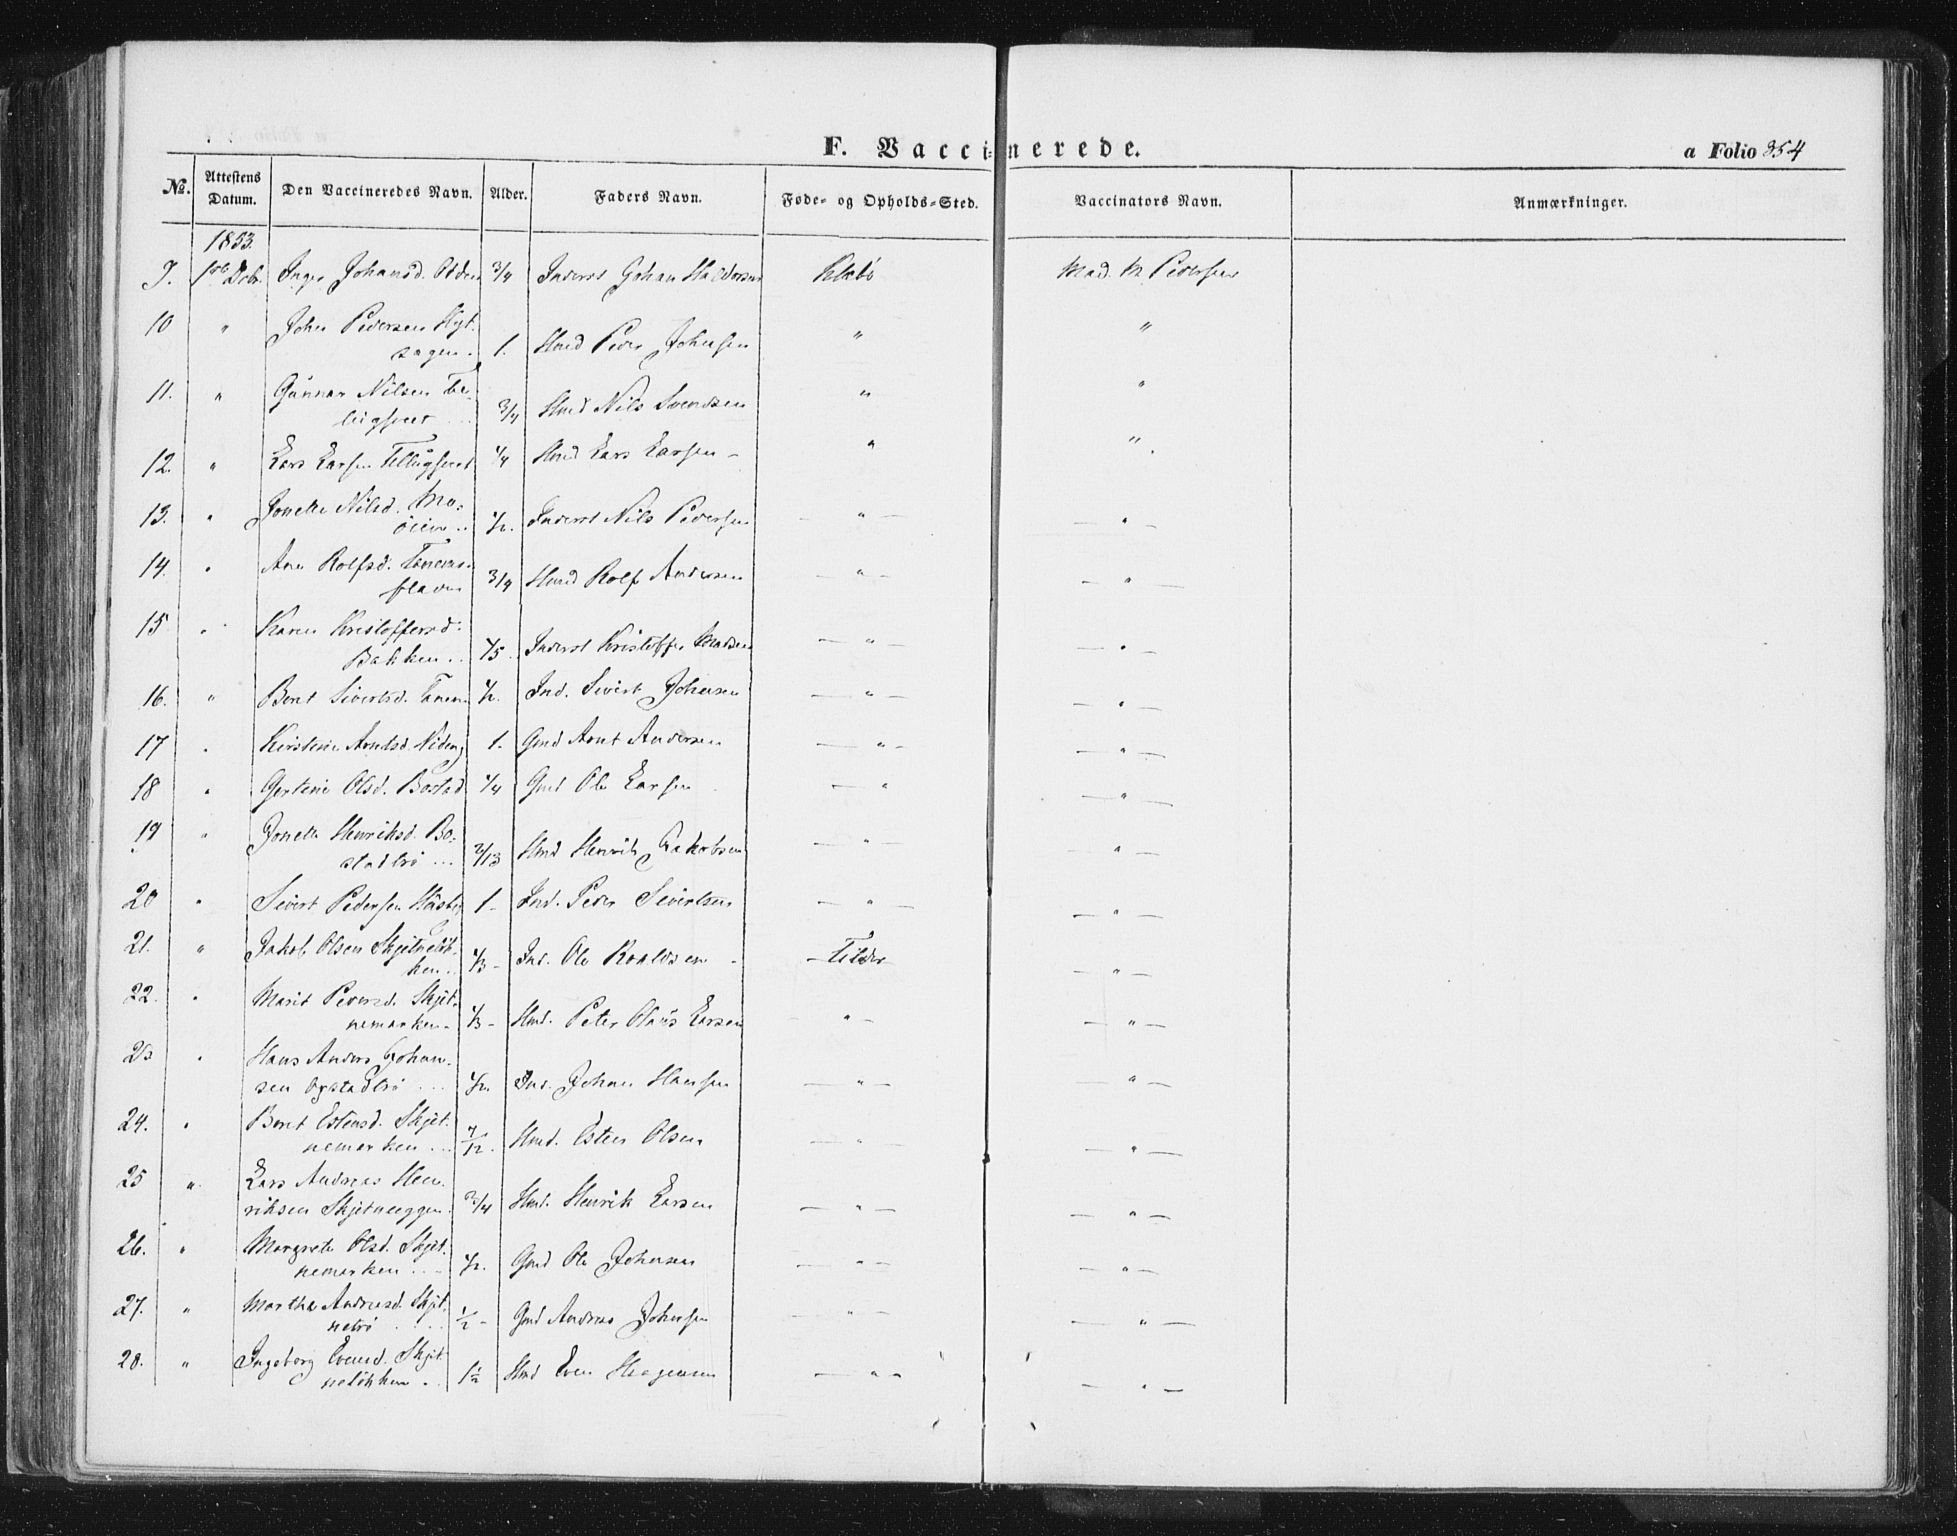 F. Vaccinerede.
a Folio 354
No. Attestens Datum. Den Vaccineredes Navn. Alder. Faders Navn. Føde- og Opholds-Sted. Vaccinators Navn. Anmærkninger.
1853.
9. 1ste Dcbr. Inger Johansd. 3/4 Inderst Johan Klæbo Mad. M. Pedersen
10 " John Pedersen Hyt-
sagen. 1. Hmd Peder Johnsen " "
11. " Gunnar Nilsen Te-
ligseet 3/4 Hmd Nils Svendsen " "
12. " Lars Larsen 1/4 Hmd Lars Larsen - " "
13. " Jonetta Nilsd. Mo-
1/2. Inderst Nils Pedersen — " — — " —
14. " Ane Rolfsd. Tanems-
3/4 Hmd Rolf Andersen — " — — " —
15 " Karen Kristoffersd.
Bakken.. 1/5. Inderst Kristoffer Madsen — " — — " —
16. " Berit Sivertsd. Tanem 1/2. Ind. Sivert Johnsen — " — — " —
17 " Kirstine Arntsd. Nideng 1. Gmd Arnt Andersen — " — — " —
18 " Gjertine Olsd. Bostad 1/4 Gmd Ole Larsen — " — " —
19 " Jonetta Henriksd. Bo-
stadtrø ... 2/13 Hmd Henrik Jakobsen — " — — " —
20 " Sivert Pedersen Huseby 1 - Ind. Peder Sivertsen — " — — " —
21. " Jakob Olsen Skjetneløk-
ken.. 1/3 - Ind. Ole Roaldsen - — Tilder — — " —
22. " Marit Pedersd. Skjet-
nemarken - 1/3 - Hmd. Peter Olaus Larsen " — — " —
23 " Hans Anders Johan-
sen Ogstadtrø ... 1/2. Ind. Johan Hansen — " — " —
24. " Berit Estensd. Skjet-
nemarken ... 7/12. Hmd. Esten Olsen — " — — " —
25 " Lars Andreas Hen-
riksen Skjetneeggen. 3/4 Hmd. Henrik Larsen — " — — " —
26. " Margrete Olsd. Skjet-
nemarken ... 1/2. Gmd Ole Johnsen — " — — " —
27. " Martha Andreasd. Skjet-
netrø .... 1/2 - Gmd Andreas Johnsen — " — — " —
28. " Ingeborg Evensd. Skjet-
neløkken . 1 1/2 Hmd Even Haagensen — " " — " —